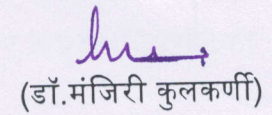 (डॉ.मंजिरी कुलकर्णी)